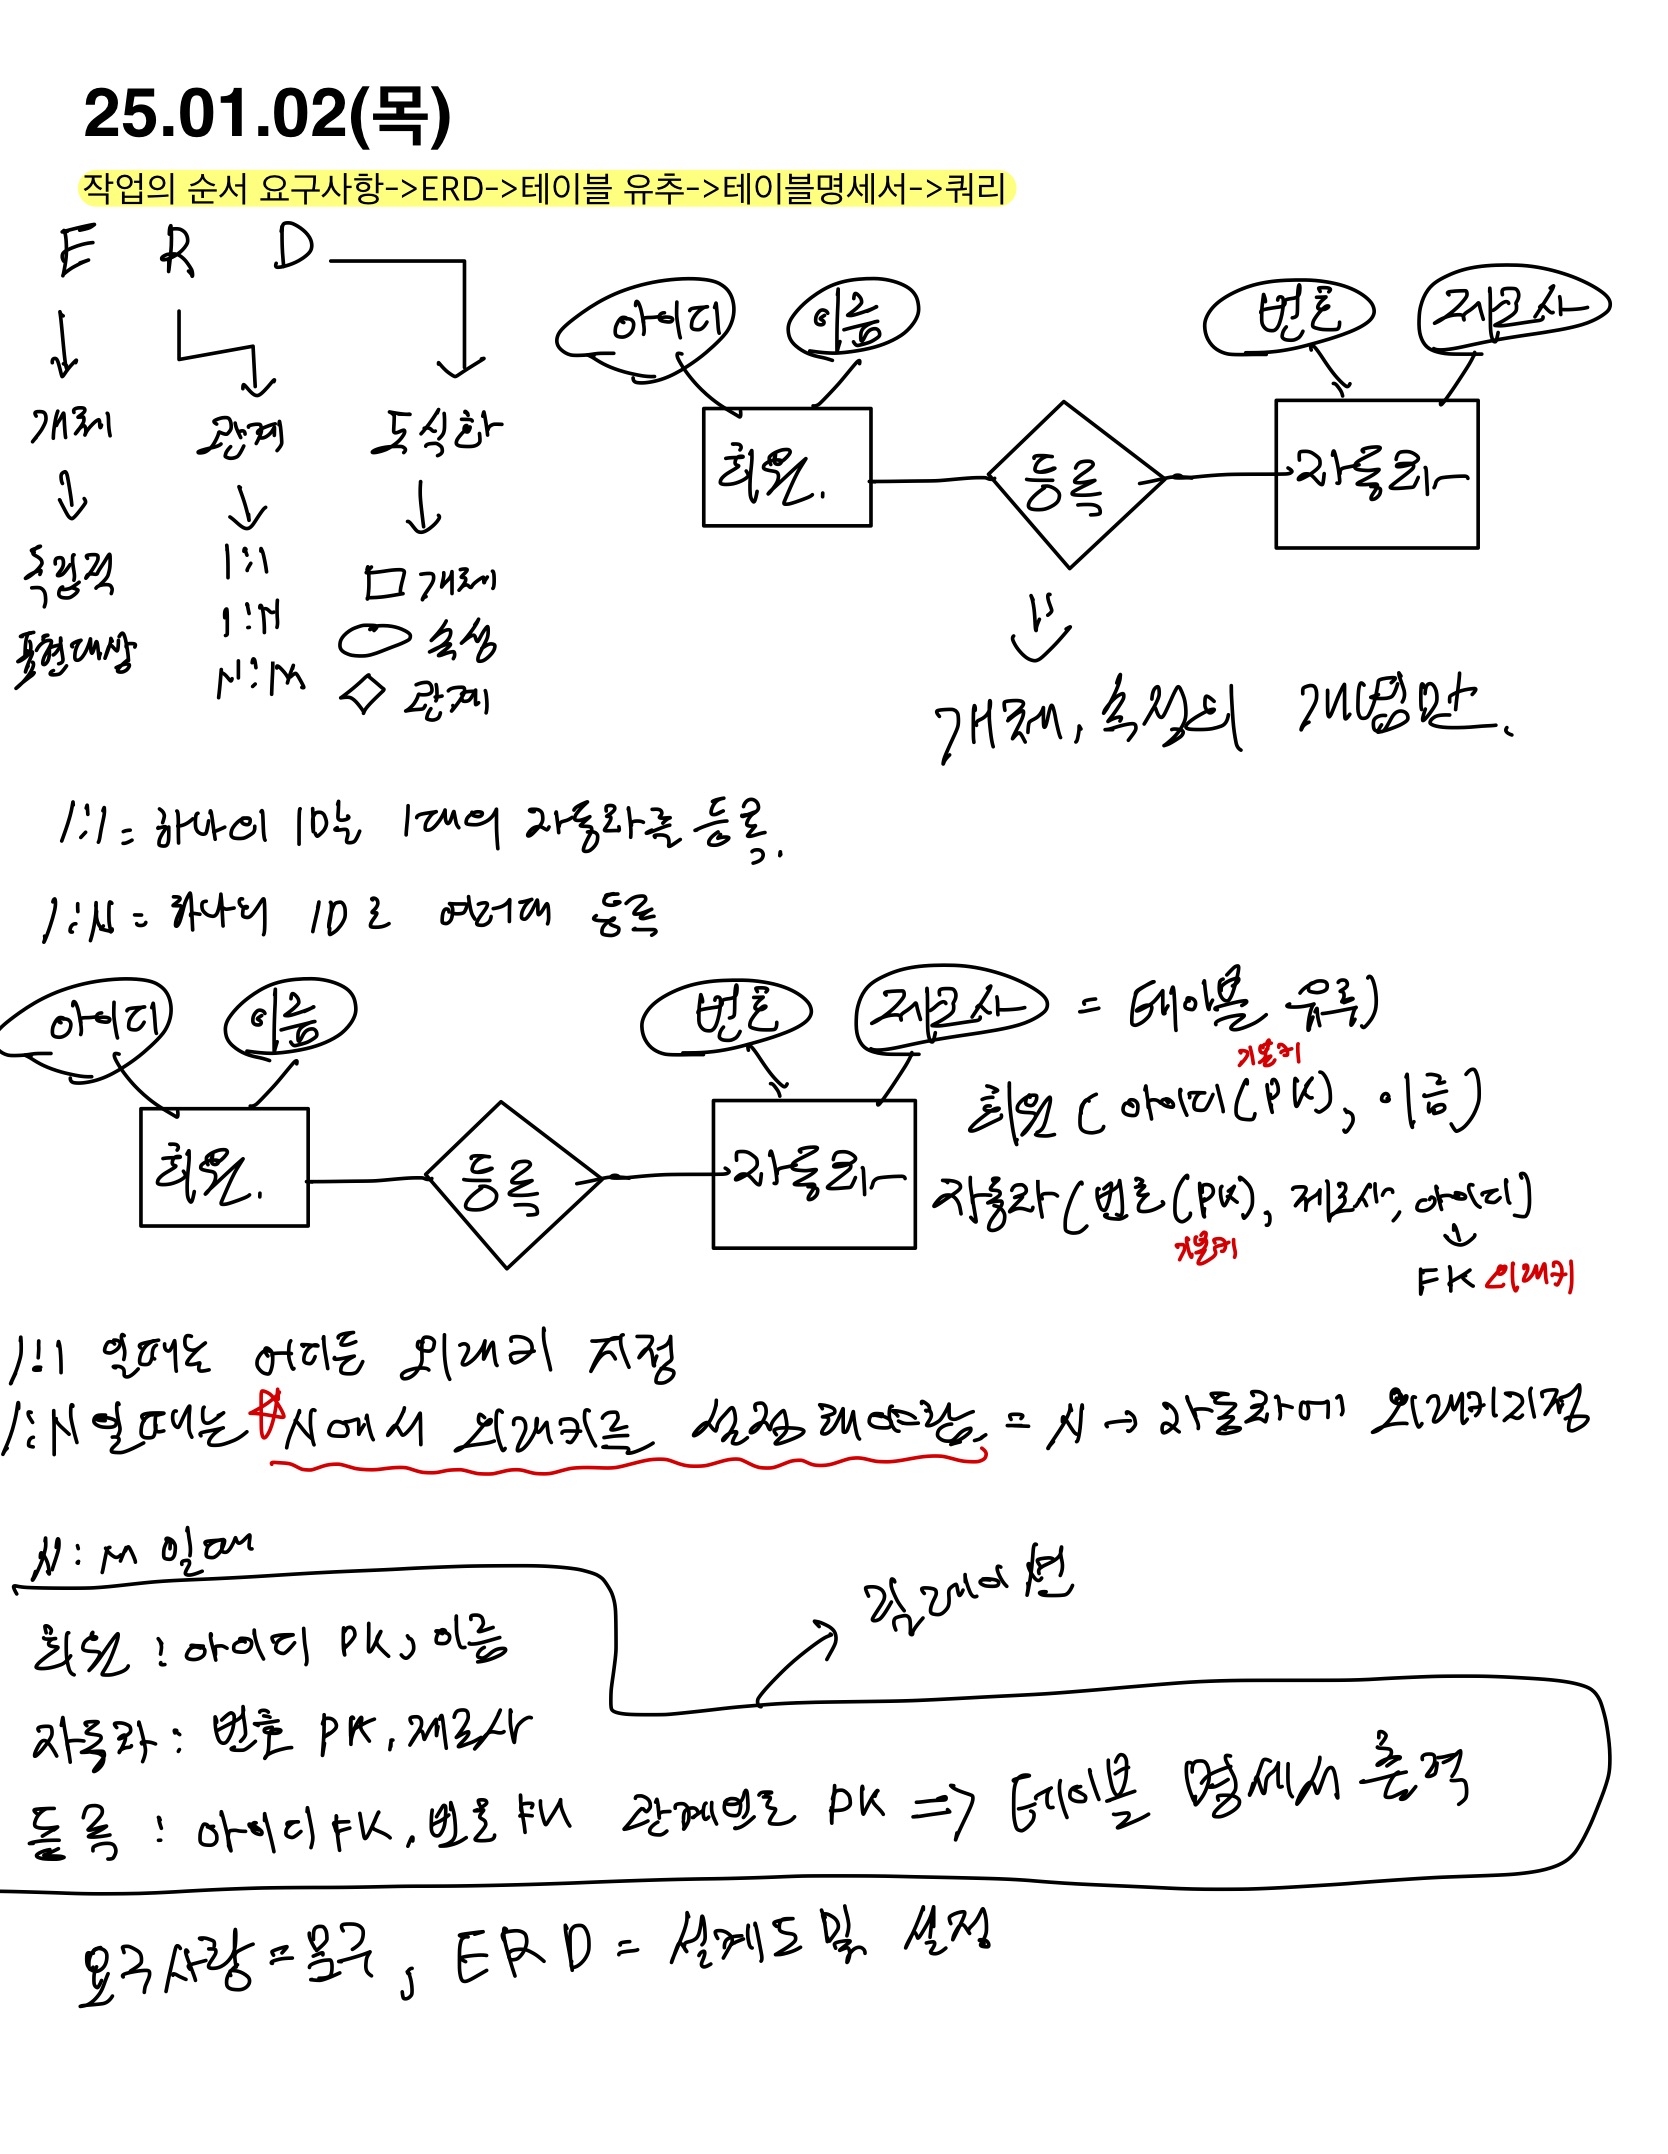 25.01.02(목)
작업의 순서 요구사항->ERD->테이블 유추->테이블명세서->쿼리
E R D
개체 관계 도식화
독립적 표현대상
1:1
1:N
N:M
개체
속성
관계
아이디 이름 번호 제조사
회원. 등록 자동차
개체, 속성의 개념만.
1:1 = 하나의 ID는 1대의 자동차를 등록.
1:N = 하나의 ID로 여러대 등록
아이디 이름 번호 제조사 = 테이블 유추)
회원. 등록 자동차
기본키
회원 ( 아이디(PK), 이름)
자동차 (번호(PK), 제조사, 아이디)
기본키
FK 외래키
1:1 일때는 어디든 외래키 지정
1:N 일때는 N에서 외래키를 설정해야함. = N → 자동차에 외래키지정
N:M 일때
릴레이션
회원 : 아이디 PK, 이름
자동차 : 번호 PK, 제조사
등록 : 아이디 FK, 번호 FK 관계번호 PK => 테이블 명세서 출력
요구사항 = 문구, ERD = 설계도 및 설정